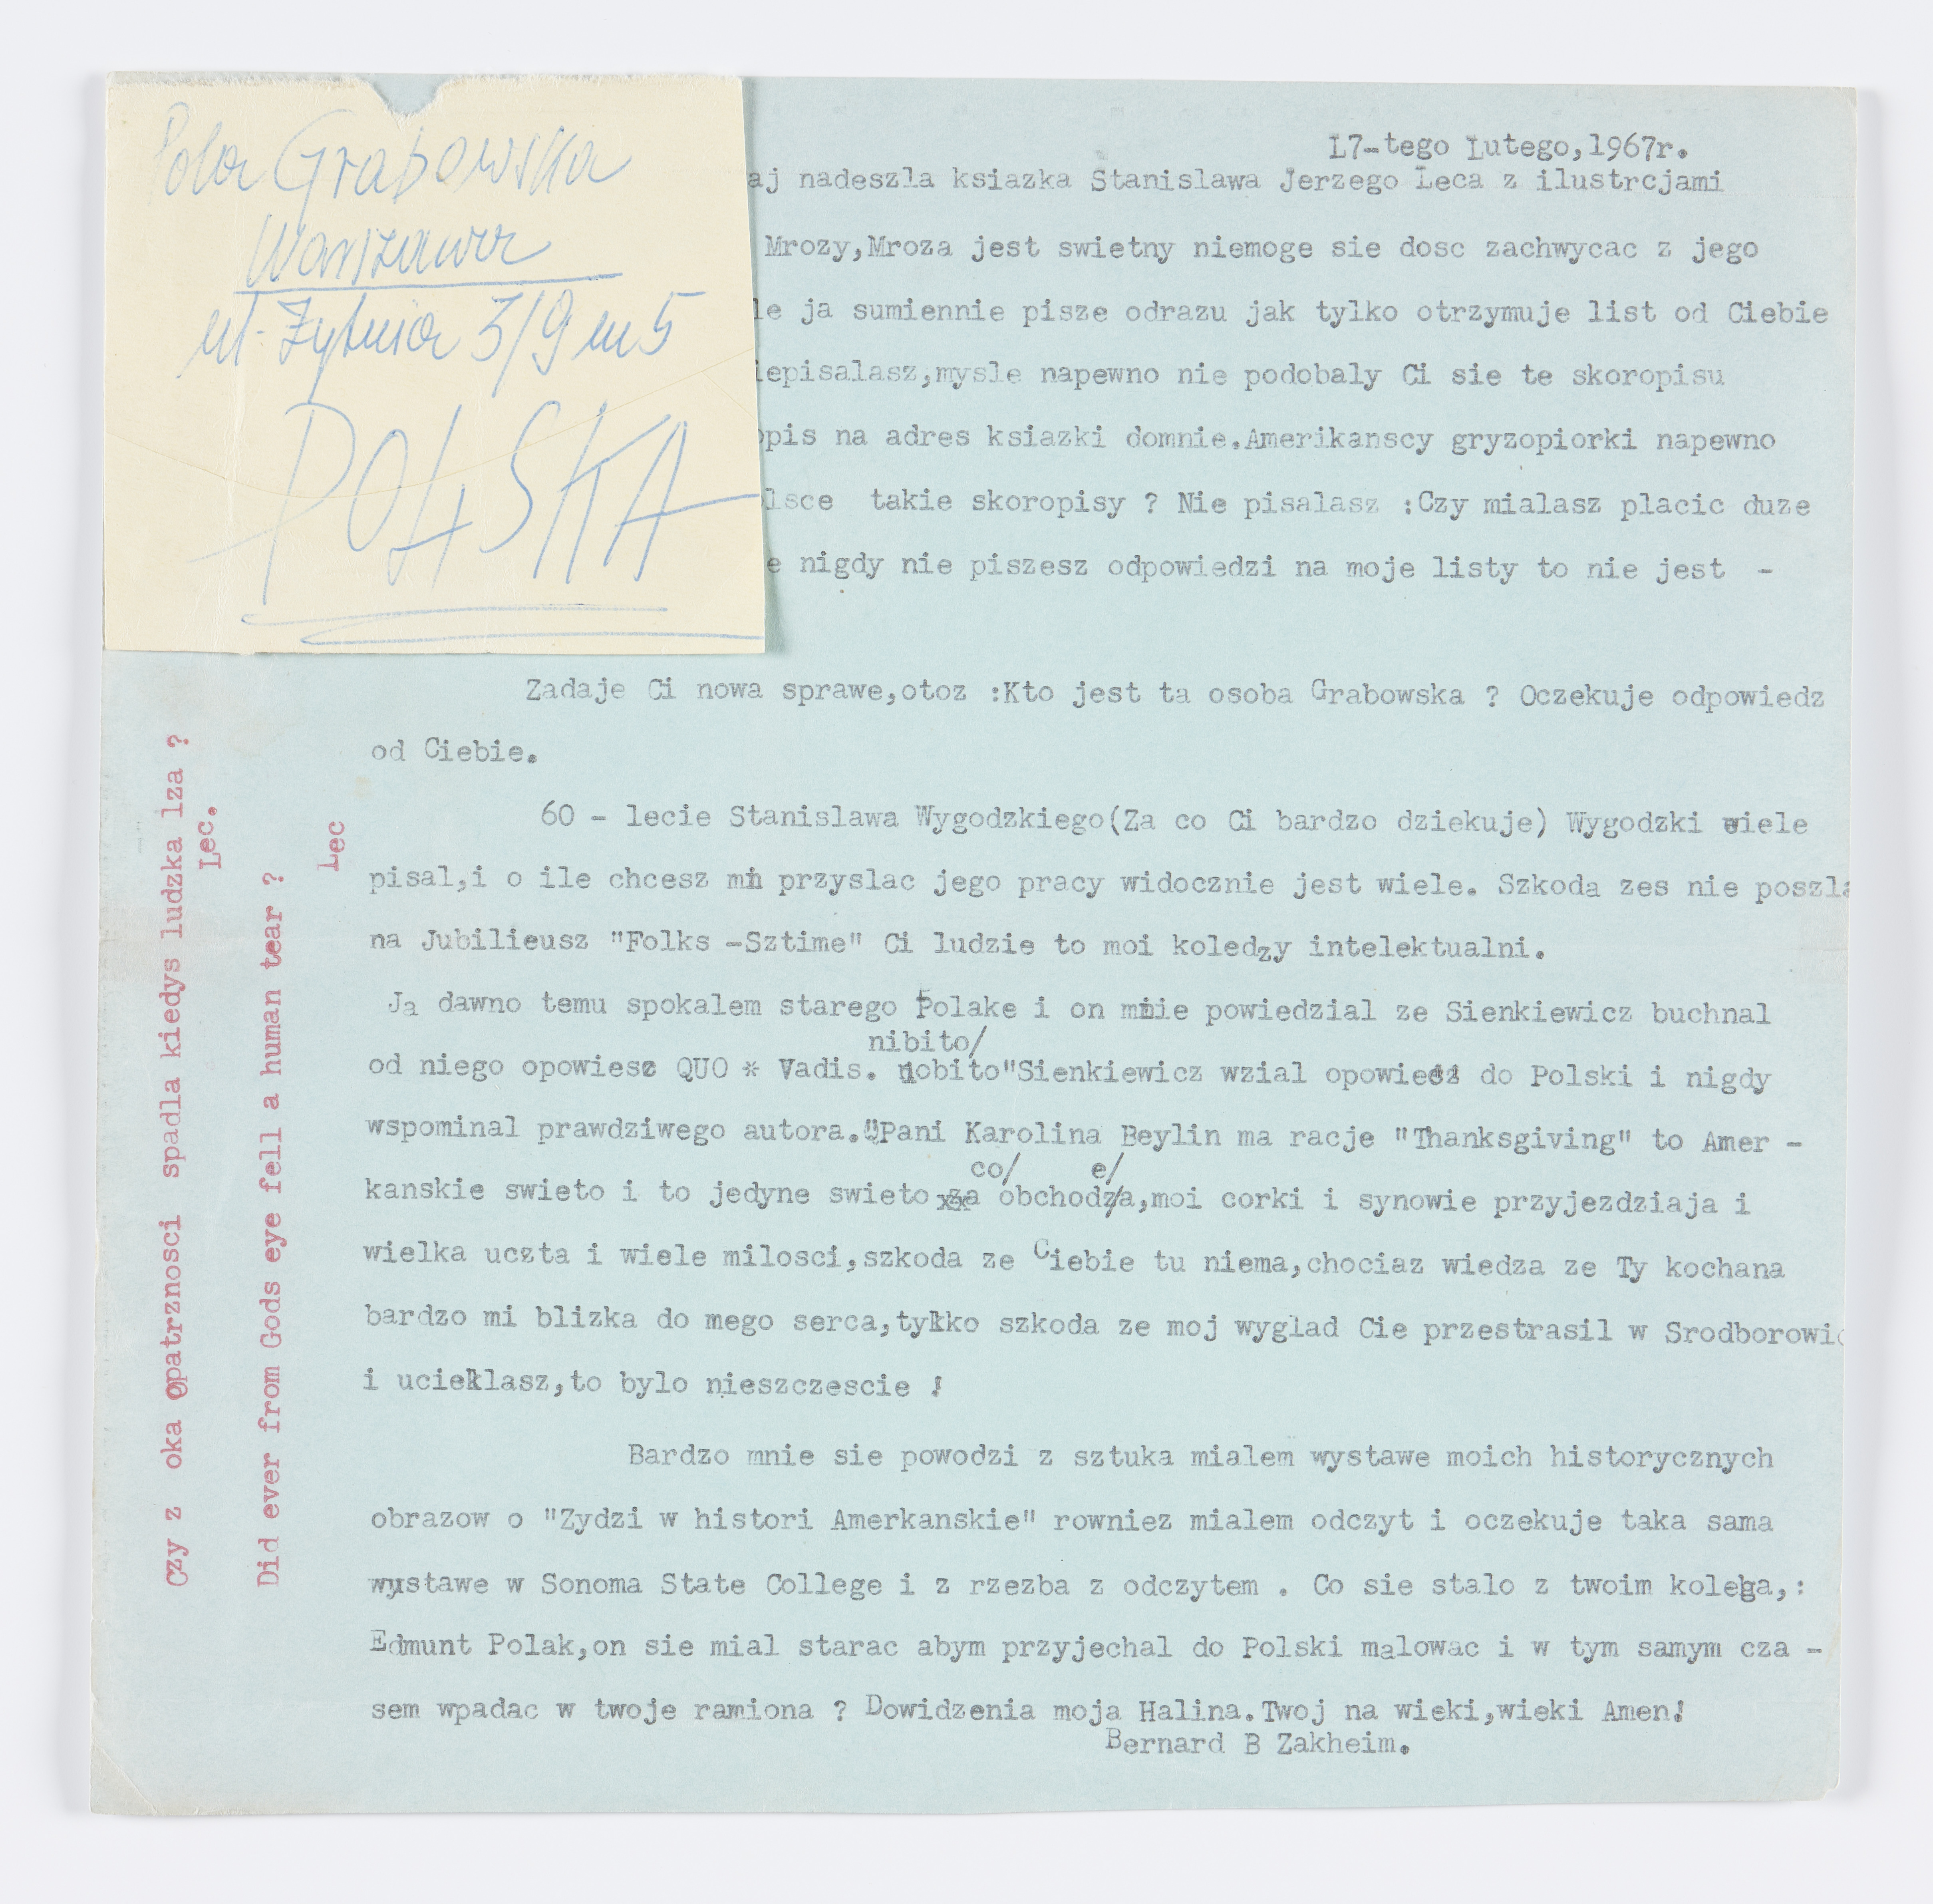 Pola Grabowska
Warszawa
ul. Żytnia 3/9 m 5
POLSKA
L7-tego Lutego,1967r.
aj nadeszla ksiazka Stanislawa Jerzego Leca z ilustrcjami
Mrozy,Mroza jest swietny niemoge sie dosc zachwycac z jego
le ja sumiennie pisze odrazu jak tylko otrzymuje list od Ciebie
iepisalasz,mysle napewno nie podobaly Ci sie te skoropisu
opis na adres ksiazki domnie.Amerikanscy gryzopiorki napewno
lsce takie skoropisy ? Nie pisalasz :Czy mialasz placic duze
e nigdy nie piszesz odpowiedzi na moje listy to nie jest -
Zadaje Ci nowa sprawe,otoz :Kto jest ta osoba Grabowska ? Oczekuje odpowiedz
od Ciebie.
60 - lecie Stanislawa Wygodzkiego(Za co Ci bardzo dziekuje) Wygodzki wiele
pisal,i o ile chcesz mi przyslac jego pracy widocznie jest wiele. Szkoda zes nie poszla
na Jubilieusz "Folks -Sztime" Ci ludzie to moi koledzy intelektualni.
Ja dawno temu spokalem starego Polake i on mnie powiedzial ze Sienkiewicz buchnal
nibito/
od niego opowiesc QUO * Vadis. nobito"Sienkiewicz wzial opowiesz do Polski i nigdy
wspominal prawdziwego autora."Pani Karolina Beylin ma racje "Thanksgiving" to Amer -
co/ e/
kanskie swieto i to jedyne swieto za obchodza,moi corki i synowie przyjezdziaja i
wielka uczta i wiele milosci,szkoda ze Ciebie tu niema,chociaz wiedza ze Ty kochana
bardzo mi blizka do mego serca,tylko szkoda ze moj wyglad Cie przestrasil w Srodborowic
i ucieklasz,to bylo nieszczescie !
Bardzo mnie sie powodzi z sztuka mialem wystawe moich historycznych
obrazow o "Zydzi w histori Amerkanskie" rowniez mialem odczyt i oczekuje taka sama
wystawe w Sonoma State College i z rzezba z odczytem . Co sie stalo z twoim kolega,:
Edmunt Polak,on sie mial starac abym przyjechal do Polski malowac i w tym samym cza -
sem wpadac w twoje ramiona ? Dowidzenia moja Halina.Twoj na wieki,wieki Amen!
Bernard B Zakheim.
Czy z oka Opatrznosci spadla kiedys ludzka lza ?
Lec.
Did ever from Gods eye fell a human tear ?
Lec